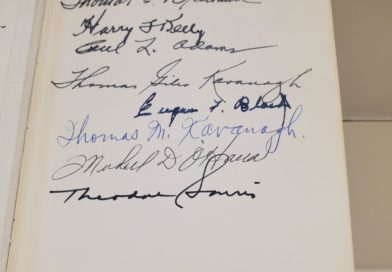 Thomas
Harry F Kelly
Paul L. Adams
Thomas Giles Kavanagh
Eugene F. Black
Thomas M. Kavanagh.
Michael D O'Hara
Theodore Souris